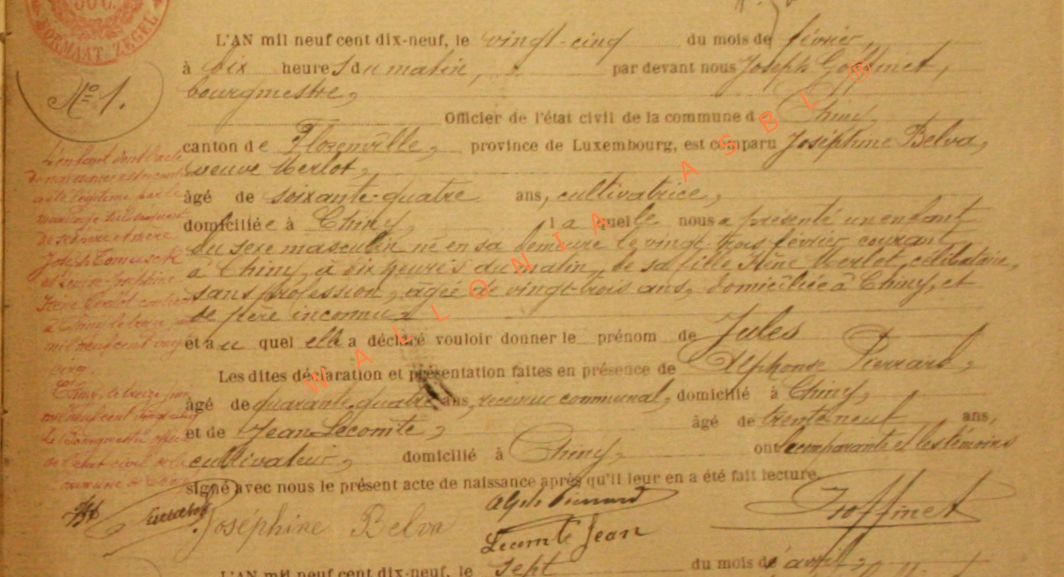 NORMAAT ZEGEL
No 1.
L'AN mil neuf cent dix-neuf, le vingt-cinq du mois de février,
à dix heures du matin, par devant nous Joseph Goffinet,
bourgmestre,
Officier de l'état civil de la commune de Chiny,
canton de Florenville, province de Luxembourg, est comparu Joséphine Belva,
veuve Merlot,
âgé de soixante-quatre ans, cultivatrice,
domiciliée à Chiny, laquelle nous a présenté un enfant
du sexe masculin né en sa demeure le vingt-trois février courant
à Chiny, à dix heures du matin, de sa fille Irène Merlot, célibataire,
sans profession, âgée de vingt-trois ans, domiciliée à Chiny, et
de père inconnu,
et auquel elle a déclaré vouloir donner le prénom de Jules
Les dites déclaration et présentation faites en présence de Alphonse Pierrard,
âgé de quarante-quatre ans, receveur communal, domicilié à Chiny,
et de Jean Lecomte, âgé de trente-neuf ans,
cultivateur, domicilié à Chiny, ont la comparante et les témoins
signé avec nous le présent acte de naissance après qu'il leur en a été fait lecture.
Joséphine Belva
Alph Pierrard
Lecomte Jean
Goffinet
L'AN mil neuf cent dix-neuf, le sept du mois d'avril,
L'enfant dont l'acte
de naissance est ci-contre
a été légitimé par le
mariage
de ses père et mère
Joseph
Irène Merlot
à Chiny le treize
mil neuf cent vingt
cinq.
Chiny, le treize
mil neuf cent vingt cinq
Le Bourgmestre officier
de l'état civil de la
commune de Chiny
WALLONIA ASBL